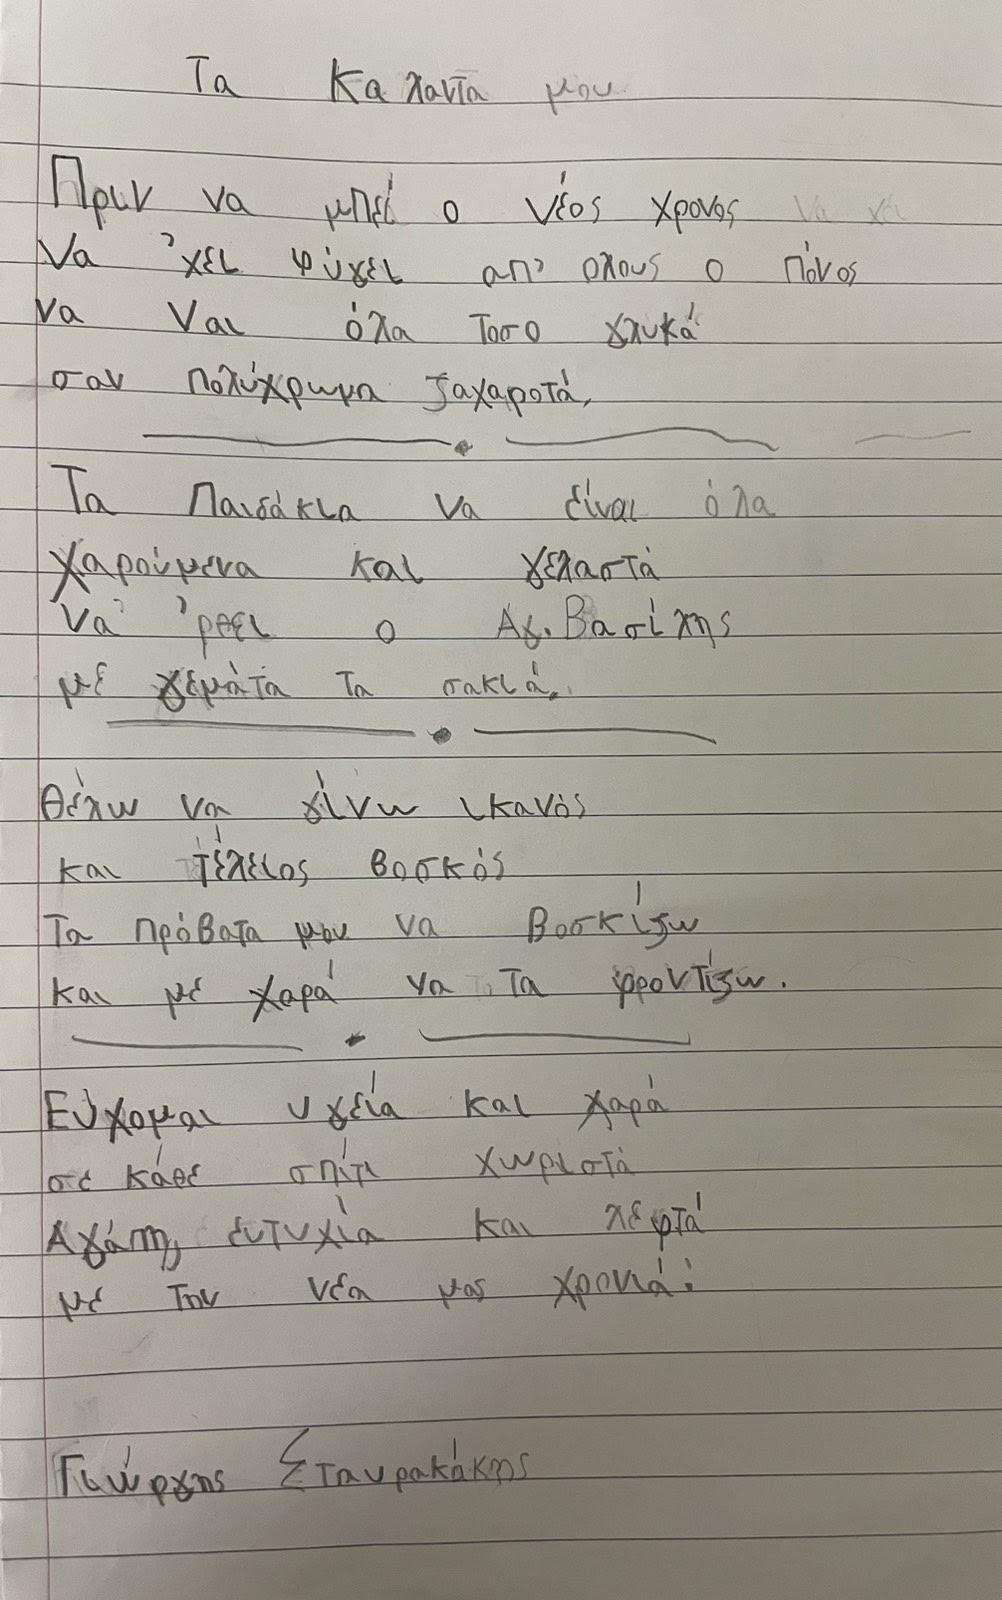 Τα Καλαντα μου
Πριν να μπεί ο νέος χρονος
Να 'χει φύγει απ' ολους ο πόνος
να ναι όλα τοσο γλυκά
σαν πολύχρωμα ζαχαροτά.
Τα παιδάκια να είναι όλα
χαρούμενα και γελαστά
Να 'ρθει ο Αγ. Βασίλης
με γεμάτα τα σακιά.
Θέλω να γίνω ικανός
και τέλειος βοσκός
Τα πρόβατα μου να βοσκίζω
και με χαρά να τα φροντίζω.
Εύχομαι υγεία και χαρά
σε κάθε σπίτι χωριστά
Αγάπη, ευτυχία και λεφτά
με την νέα μας χρονιά!
Γιώργης Σταυρακάκης